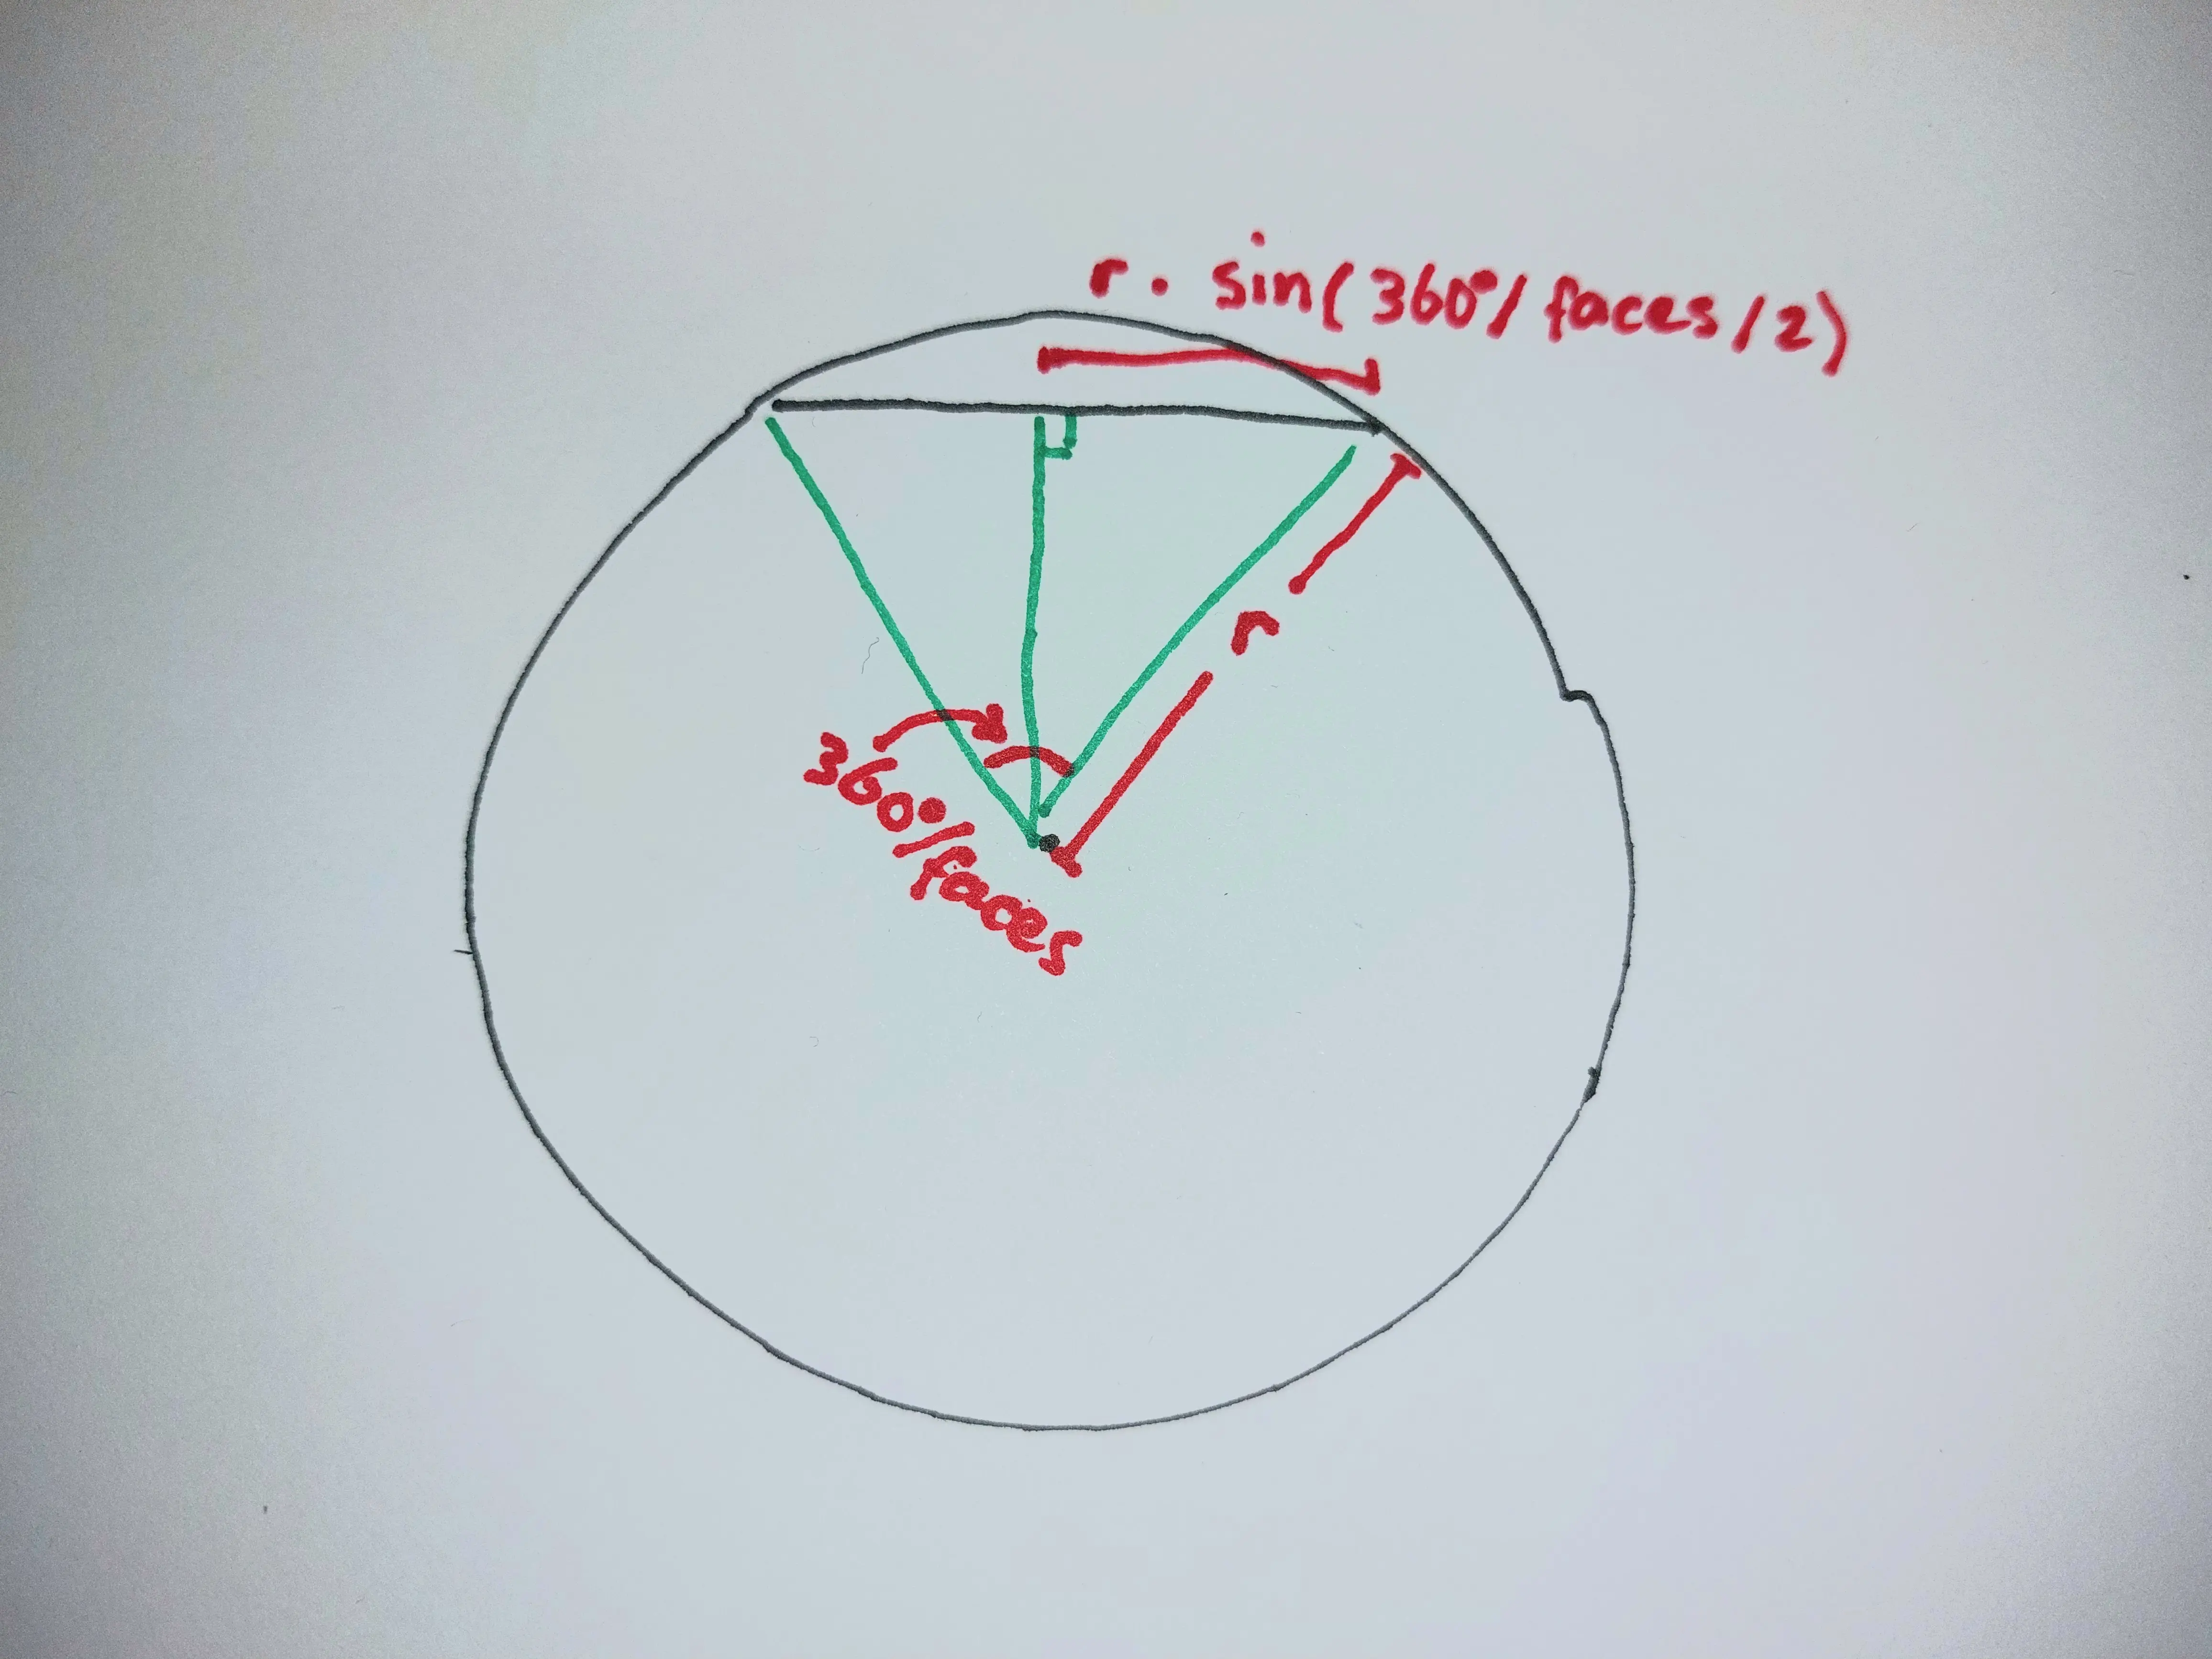 r · sin(360°/faces/2)
r
360°/faces